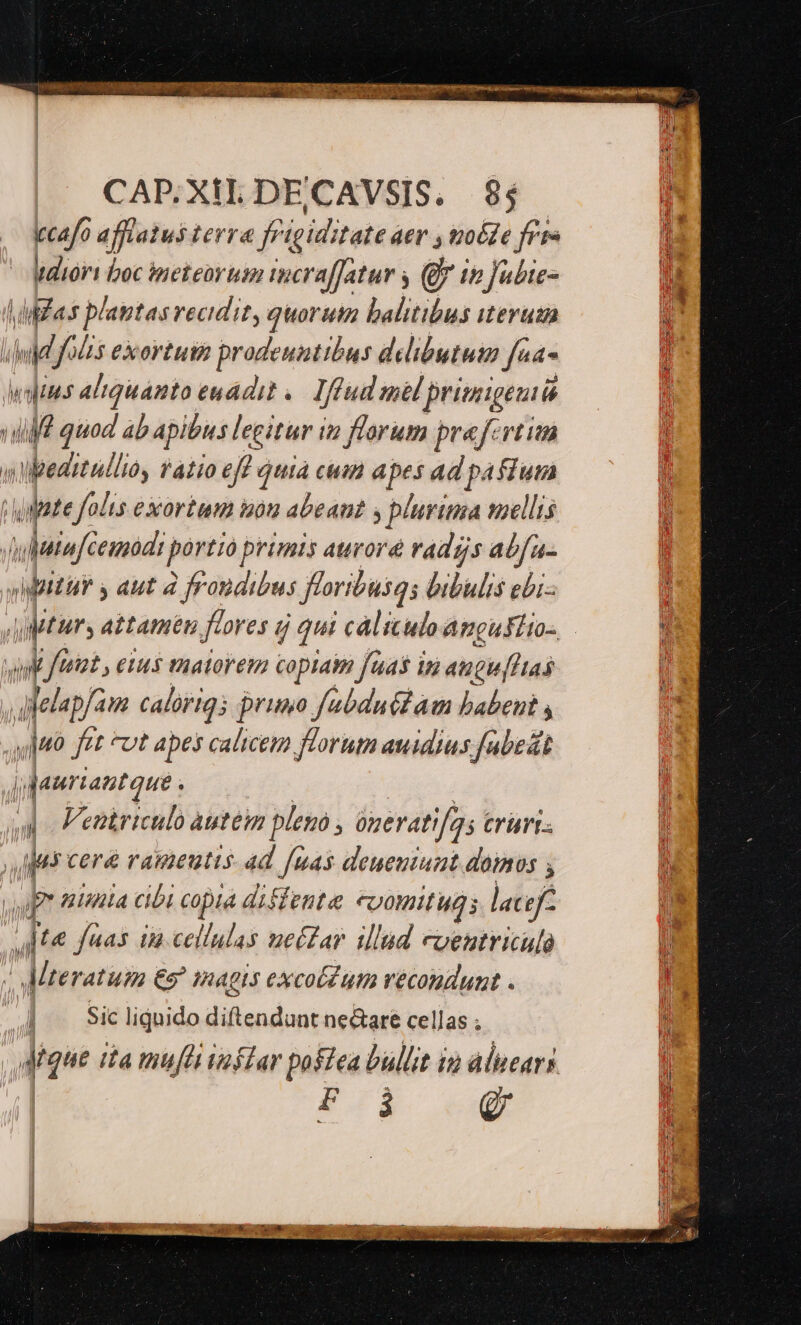 CAP. XII. DE CAVSIS. 85
afflatus terræ frigiditate aer, nocte fri-
hoc meteorum incrassatur, & in subie-
plantas recidit, quorum halitibus iterum
folis exortum prodeuntibus delibutum sua-
aliquanto euadit. Istud mel primigeniū
quod ab apibus legitur in florum præsertim
ratio est quia cum apes ad pastum
folis exortum non abeant, plurima mellis
portio primis auroræ radijs absu-
aut à frondibus floribusq; bibulis ebi-
attamen flores ij qui caliculo angustio-
sunt, eius maiorem copiam suas in angustias
caloriq; primo subductam habent,
fit vt apes calicem florum auidius subeāt
Ventriculo autem pleno, oneratisq; cruri-
ceræ ramentis ad suas deueniunt domos,
nimia cibi copia distentæ vomituq; lacef-
suas in cellulas nectar illud ventriculo
& magis excoctum recondunt.
Sic liquido distendunt nectare cellas;
ita musti instar postea bullit in alueari
F 3 &